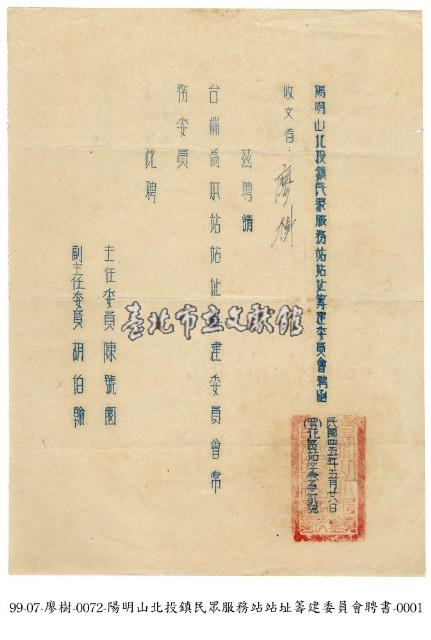 陽明山北投鎮民眾服務站站址籌建委員會聘函
民國四五年五月廿八日
收文者：廖樹
茲聘請
台端為本站站址籌建委員會常
務委員
此聘
主任委員 陳號國
副主任委員 胡伯翰
臺北市立文獻館
99-07-廖樹-0072-陽明山北投鎮民眾服務站站址籌建委員會聘書-0001